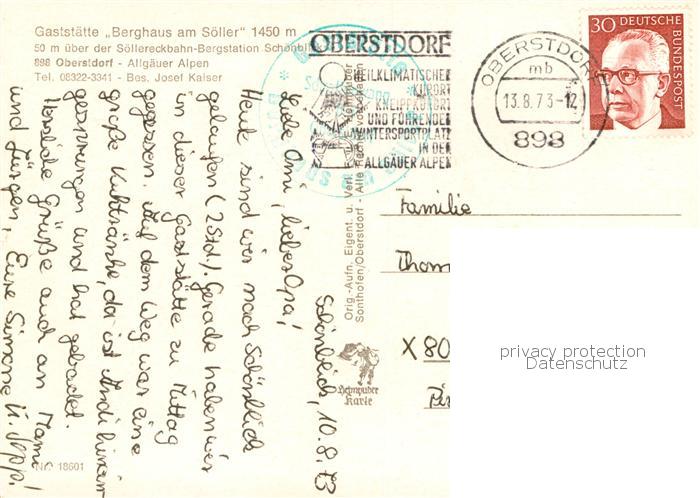 Gaststätte „Berghaus am Söller" 1450 m
50 m über der Söllereckbahn-Bergstation Schönblick
898 Oberstdorf - Allgäuer Alpen
Tel. 08322-3341 - Bes. Josef Kaiser
Schönblick, 10.8.73
Liebe Omi, lieber Opa!
Heute sind wir nach Schönblick
gelaufen (2 Std.). Gerade haben wir
in dieser Gaststätte zu Mittag
gegessen. Auf dem Weg war eine
große Kuhtränke, da ist Andi hinein
gesprungen und hat gebadet.
Herzliche Grüße auch an Mami
und Jürgen, Eure Simone u. Seppi!
No 18601
Orig.-Aufn. Eigent. u. Verl.
Sonthofen/Oberstdorf - Alle Rechte vorbehalten
Schmuder
Karte
OBERSTDORF
HEILKLIMATISCHER
KURORT
KNEIPPKURORT
UND FÜHRENDER
WINTERSPORTPLATZ
IN DEN
ALLGÄUER ALPEN
OBERSTDORF
mb
13.8.73-12
898
30 DEUTSCHE
BUNDESPOST
Familie
Thom
X 80
privacy protection
Datenschutz